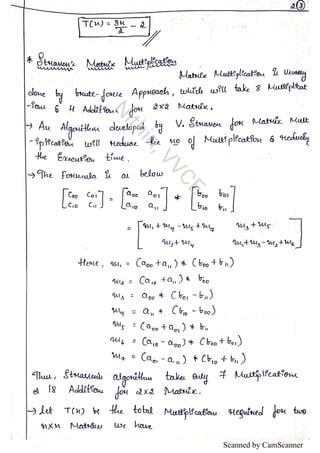 2 3
T(n) = 3n/2 - 2
* Strassen's Matrix Multiplication
Matrix Multiplication is usually
done by brute-force Approach, which will take 8 Multiplicat
-ions & 4 Additions for 2x2 Matrix.
→ An Algorithm developed by V. Strassen for Matrix Mult
-iplication will reduce the no of Multiplication & reduces
the Execution time.
→ The Formula is as below
[C00 C01 C10 C11] = [a00 a01 a10 a11] * [b00 b01 b10 b11]
= [m1 + m4 - m5 + m7   m3 + m5
m2 + m4   m1 + m3 - m2 + m6]
Here, m1 = (a00 + a11) * (b00 + b11)
m2 = (a10 + a11) * b00
m3 = a00 * (b01 - b11)
m4 = a11 * (b10 - b00)
m5 = (a00 + a01) * b11
m6 = (a10 - a00) * (b00 + b01)
m7 = (a01 - a11) * (b10 + b11)
Thus, Strassen's algorithm takes only 7 Multiplications
& 18 Addition for 2x2 Matrix.
→ Let T(n) be the total Multiplication required for two
nxn Matrices we have
Nithin, VVCE
Scanned by CamScanner